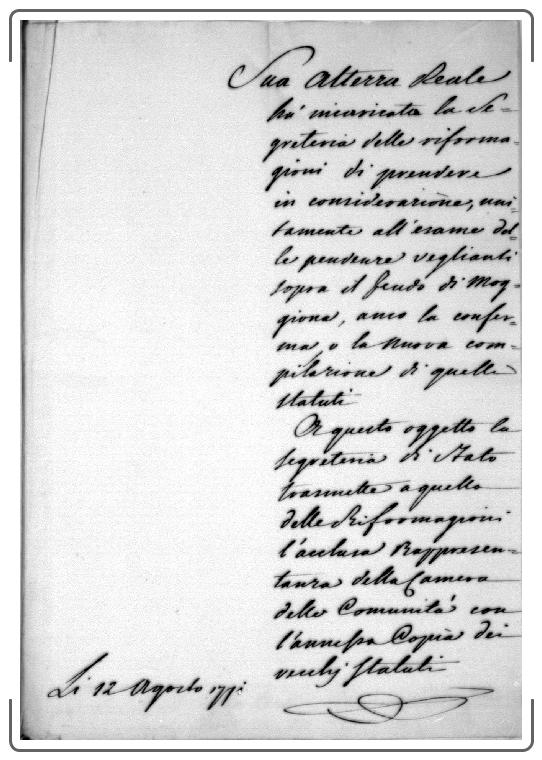 Sua Alterra Reale
há incaricata la Se-
greteria delle riforma-
gioni di prendere
in considerazione, uni-
tamente all'esame del-
le pendenze veglianti
sopra il feudo di Mog-
giona, anco la confer-
ma o la nuova com-
pilazione di quelli
statuti
A questo oggetto la
segreteria di Stato
trasmette a quella
delle Riformagioni
l'acclusa Rappresen-
tanza della Camera
delle Comunità con
l'annessa Copia dei
vecchj statuti
Li 12 Agosto